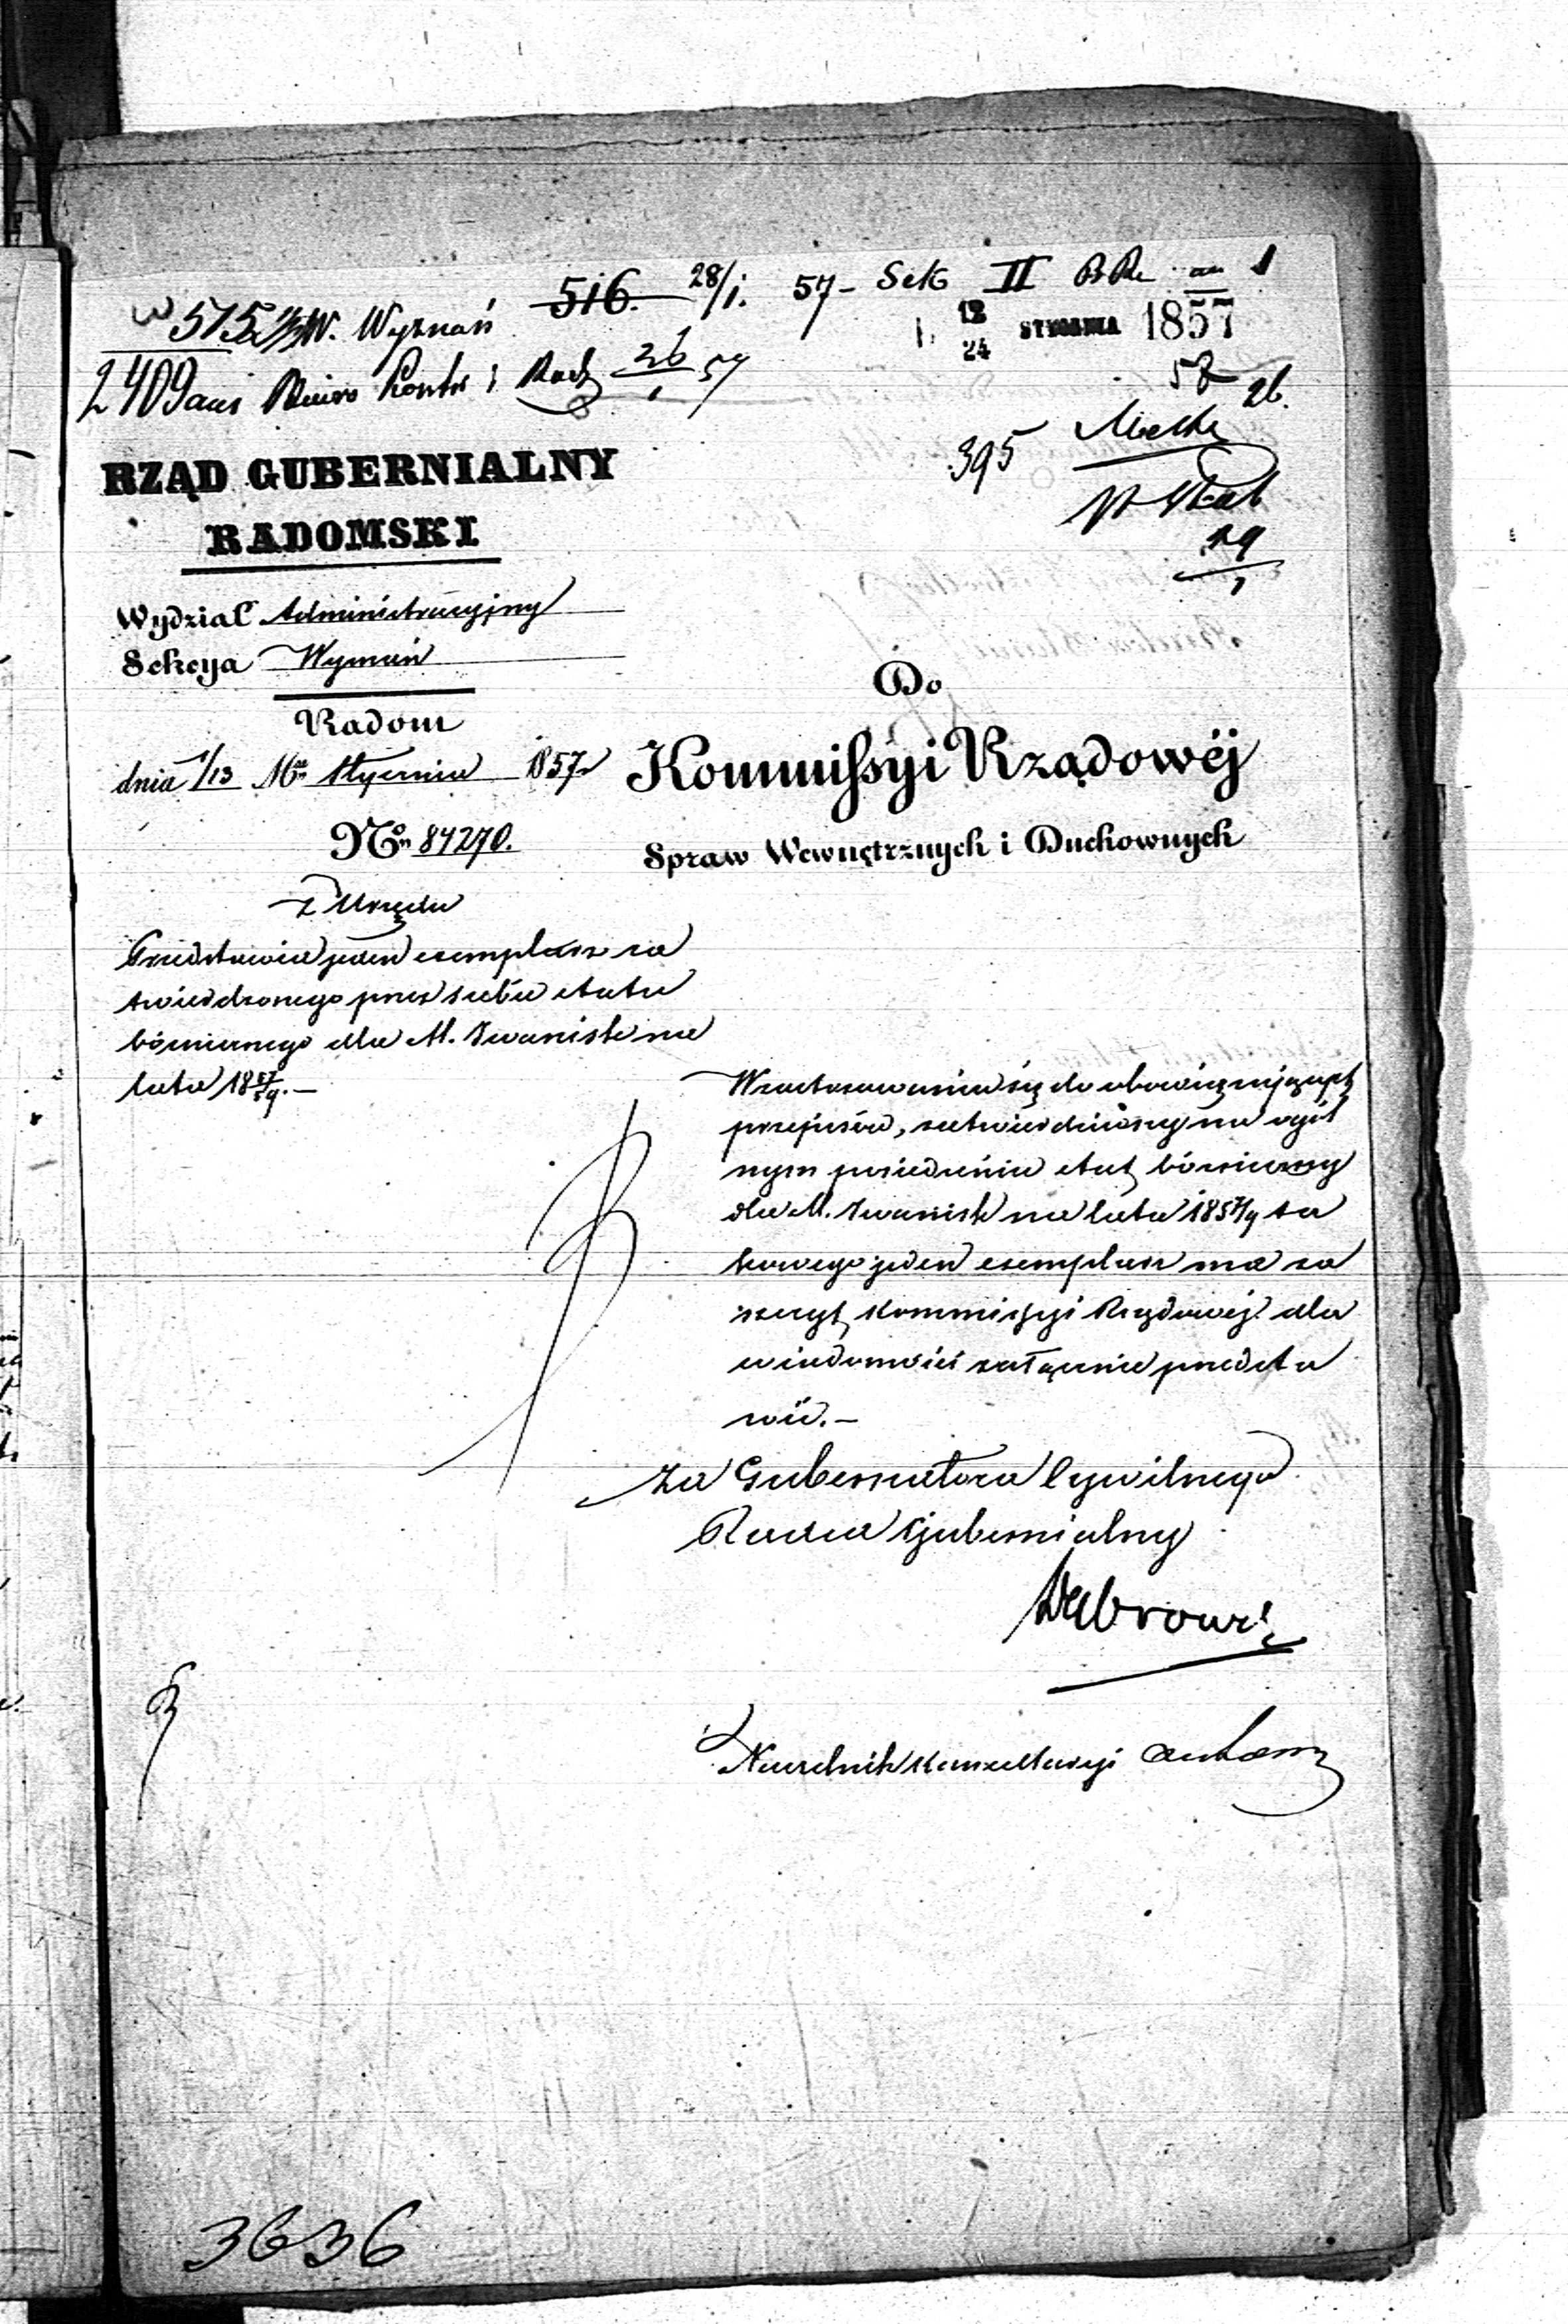 516. 28/1. 57 - Sek II
575 W. Wyznań
12/24 STYCZNIA 1857
2409 Biuro Kontr i Rach 26/1 57
26.
395
19/1
RZĄD GUBERNIALNY
RADOMSKI
Wydział Administracyjny
Sekcya Wyznań
Radom
dnia 1/13 Mca Stycznia 1857 r
No 84270.
Do
Kommissyi Rządowéj
Spraw Wewnętrznych i Duchownych
z Urzędu
Przedstawia jeden exemplarz za
twierdzonego przez siebie etatu
bóżniczego dla M. Iwanisk na
lata 18 57/59. —
W zastosowaniu się do obowiązujących
przepisów, zatwierdziwszy na ogól
nym posiedzeniu etat bóżniczny
dla M. Iwanisk na lata 1857/9 ta
kowego jeden exemplarz ma za
szczyt Kommissyi Rządowéj dla
wiadomości załącznie przedsta
wić. —
za Gubernatora Cywilnego
Radca Gubernialny
Naczelnik Kancellaryi
3636